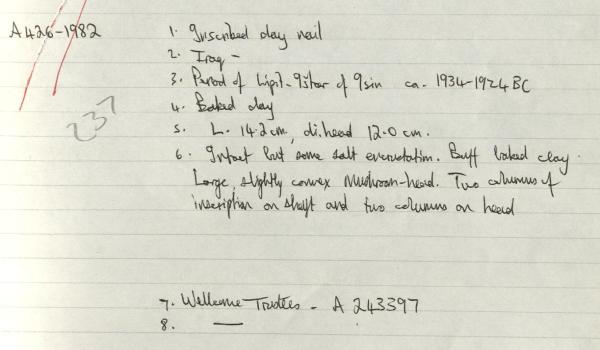 A426-1982
1. Inscribed clay nail
2. Iraq -
3. Period of Lipit-Ištar of Isin ca. 1934-1924 BC
237
4. Baked clay
5. L. 14.2 cm, di. head 12.0 cm.
6. Intact but some salt encrustation. Buff baked clay.
Large, slightly convex mushroom-head. Two columns of
inscription on shaft and two columns on head
7. Wellcome Trustees - A 243397
8. —